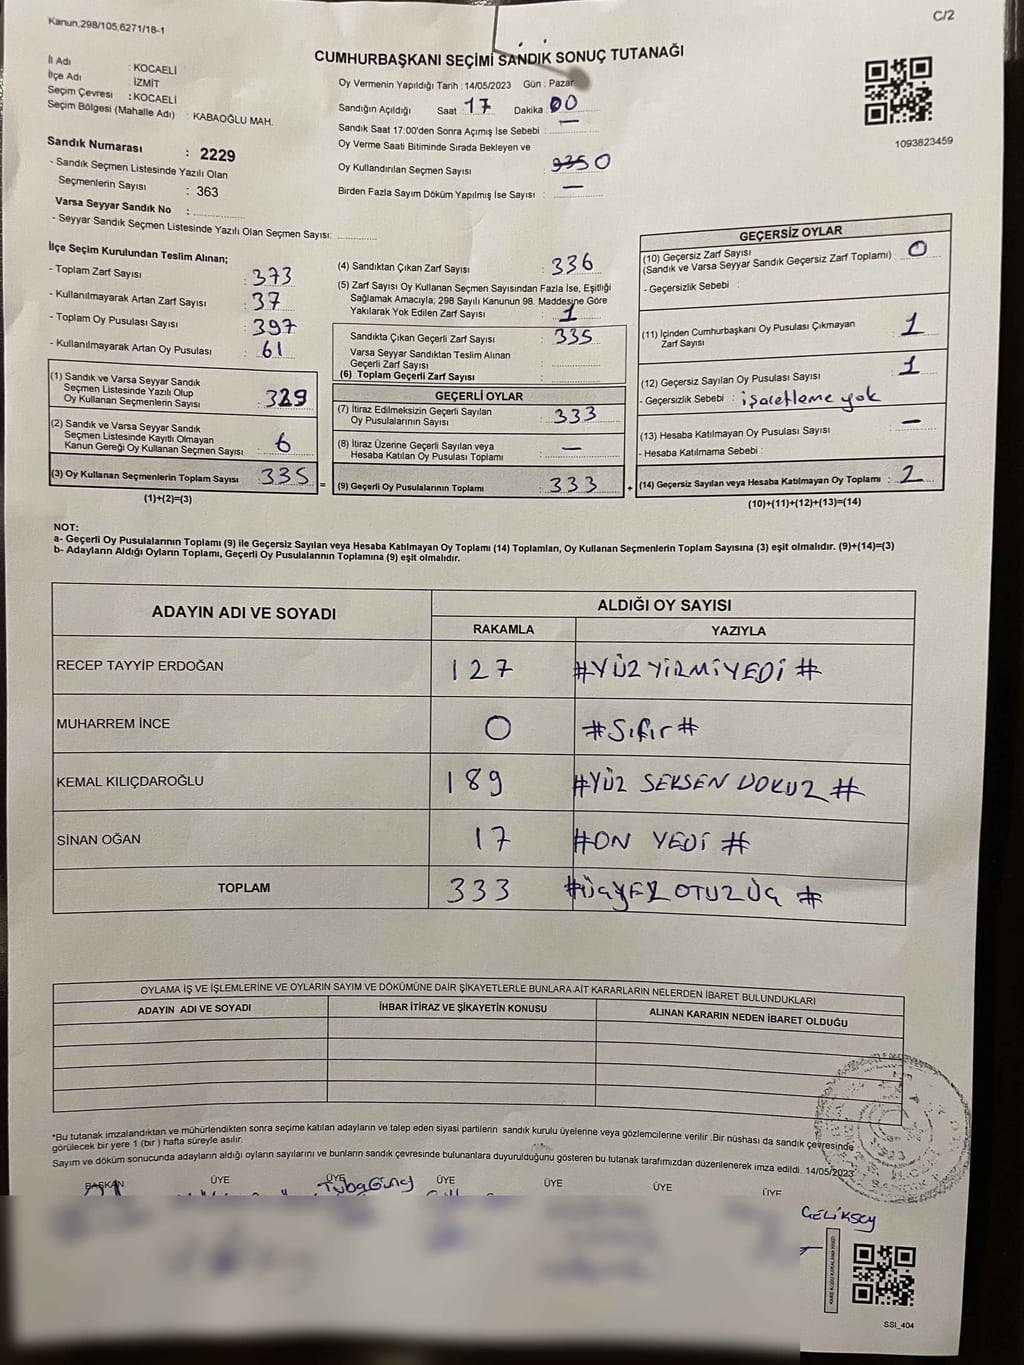 Kanun:298/105,6271/18-1
C/2
CUMHURBAŞKANI SEÇİMİ SANDIK SONUÇ TUTANAĞI
İl Adı : KOCAELİ
İlçe Adı İZMİT
Seçim Çevresi : KOCAELİ
Seçim Bölgesi (Mahalle Adı) : KABAOĞLU MAH.
Oy Vermenin Yapıldığı Tarih : 14/05/2023 Gün : Pazar
Sandığın Açıldığı Saat 17 Dakika : 00
Sandık Saat 17:00'den Sonra Açımış İse Sebebi : —
Oy Verme Saati Bitiminde Sırada Bekleyen ve
Oy Kullandırılan Seçmen Sayısı : 0
Birden Fazla Sayım Döküm Yapılmış İse Sayısı : —
1093823459
Sandık Numarası : 2229
- Sandık Seçmen Listesinde Yazılı Olan
Seçmenlerin Sayısı : 363
Varsa Seyyar Sandık No :
- Seyyar Sandık Seçmen Listesinde Yazılı Olan Seçmen Sayısı:
İlçe Seçim Kurulundan Teslim Alınan;
- Toplam Zarf Sayısı : 373
- Kullanılmayarak Artan Zarf Sayısı : 37
- Toplam Oy Pusulası Sayısı : 397
- Kullanılmayarak Artan Oy Pusulası : 61
(1) Sandık ve Varsa Seyyar Sandık
Seçmen Listesinde Yazılı Olup
Oy Kullanan Seçmenlerin Sayısı : 329
(2) Sandık ve Varsa Seyyar Sandık
Seçmen Listesinde Kayıtlı Olmayan
Kanun Gereği Oy Kullanan Seçmen Sayısı : 6
(3) Oy Kullanan Seçmenlerin Toplam Sayısı : 335
(1)+(2)=(3)
=
(4) Sandıktan Çıkan Zarf Sayısı : 336
(5) Zarf Sayısı Oy Kullanan Seçmen Sayısından Fazla İse, Eşitliği
Sağlamak Amacıyla; 298 Sayılı Kanunun 98. Maddesine Göre
Yakılarak Yok Edilen Zarf Sayısı : 1
Sandıkta Çıkan Geçerli Zarf Sayısı : 335
Varsa Seyyar Sandıktan Teslim Alınan
Geçerli Zarf Sayısı :
(6) Toplam Geçerli Zarf Sayısı :
GEÇERLİ OYLAR
(7) İtiraz Edilmeksizin Geçerli Sayılan
Oy Pusulalarının Sayısı : 333
(8) İtiraz Üzerine Geçerli Sayılan veya
Hesaba Katılan Oy Pusulası Toplamı : —
(9) Geçerli Oy Pusulalarının Toplamı : 333
+
GEÇERSİZ OYLAR
(10) Geçersiz Zarf Sayısı
(Sandık ve Varsa Seyyar Sandık Geçersiz Zarf Toplamı) : 0
- Geçersizlik Sebebi :
(11) İçinden Cumhurbaşkanı Oy Pusulası Çıkmayan
Zarf Sayısı : 1
(12) Geçersiz Sayılan Oy Pusulası Sayısı : 1
- Geçersizlik Sebebi : işaretleme yok
(13) Hesaba Katılmayan Oy Pusulası Sayısı : —
- Hesaba Katılmama Sebebi :
(14) Geçersiz Sayılan veya Hesaba Katılmayan Oy Toplamı : 2
(10)+(11)+(12)+(13)=(14)
NOT:
a- Geçerli Oy Pusulalarının Toplamı (9) ile Geçersiz Sayılan veya Hesaba Katılmayan Oy Toplamı (14) Toplamları, Oy Kullanan Seçmenlerin Toplam Sayısına (3) eşit olmalıdır. (9)+(14)=(3)
b- Adayların Aldığı Oyların Toplamı, Geçerli Oy Pusulalarının Toplamına (9) eşit olmalıdır.
ADAYIN ADI VE SOYADI
ALDIĞI OY SAYISI
RAKAMLA YAZIYLA
RECEP TAYYİP ERDOĞAN 127 #YÜZ YİRMİYEDİ #
MUHARREM İNCE 0 #Sıfır#
KEMAL KILIÇDAROĞLU 189 #YÜZ SEKSEN DOKUZ #
SİNAN OĞAN 17 #ON YEDİ #
TOPLAM 333 #ÜÇYÜZ OTUZÜÇ #
OYLAMA İŞ VE İŞLEMLERİNE VE OYLARIN SAYIM VE DÖKÜMÜNE DAİR ŞİKAYETLERLE BUNLARA AİT KARARLARIN NELERDEN İBARET BULUNDUKLARI
ADAYIN ADI VE SOYADI İHBAR İTİRAZ VE ŞİKAYETİN KONUSU ALINAN KARARIN NEDEN İBARET OLDUĞU
*Bu tutanak imzalandıktan ve mühürlendikten sonra seçime katılan adayların ve talep eden siyasi partilerin sandık kurulu üyelerine veya gözlemcilerine verilir .Bir nüshası da sandık çevresinde
görülecek bir yere 1 (bir ) hafta süreyle asılır.
Sayım ve döküm sonucunda adayların aldığı oyların sayılarını ve bunların sandık çevresinde bulunanlara duyurulduğunu gösteren bu tutanak tarafımızdan düzenlenerek imza edildi. 14/05/2023
BAŞKAN ÜYE ÜYE ÜYE ÜYE ÜYE ÜYE
SSI_404